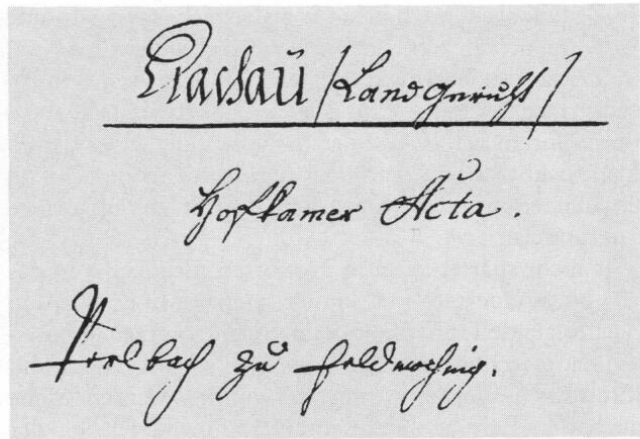 Dachaü /Landgericht/
Hofkamer Acta.
Perlbach zu Feldmoching.